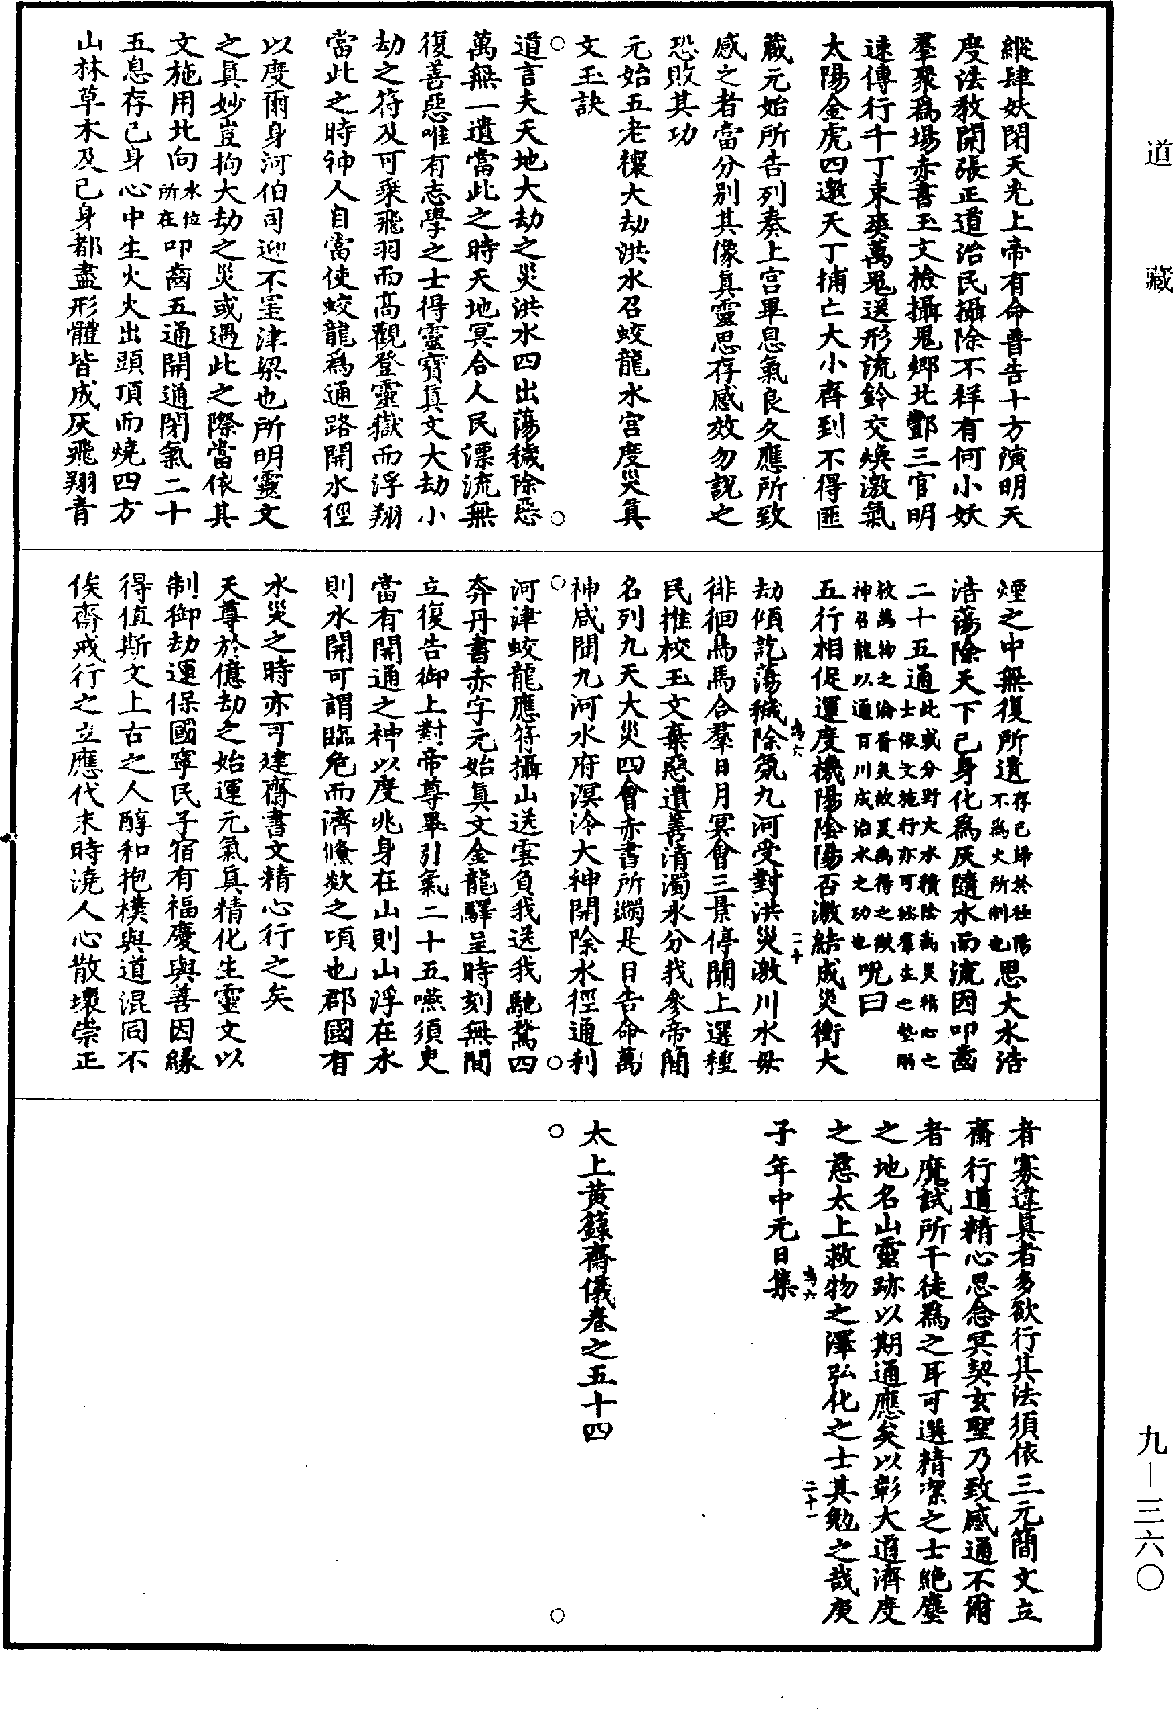 道藏
縱肆妖閉天光上帝有命普告十方演明天
度法教開張正道治民攝除不祥有何小妖
羣聚爲場赤書玉文檢攝鬼鄉北酆三官明
速傳行千丁束爽萬鬼送形流鈴交煥激氣
太陽金虎四邀天丁捕亡大小齊到不得匿
藏元始所告列奏上宮畢息氣良久應所致
感之者當分別其像真靈思存感效勿說之
恐敗其功
元始五老禳大劫洪水召蛟龍水官度災真
文玉訣
道言夫天地大劫之災洪水四出蕩穢除惡
萬無一遺當此之時天地冥合人民漂流無
復善惡唯有志學之士得靈寶真文大劫小
劫之符及可乘飛羽而高觀登靈嶽而浮翔
當此之時神人自當使蛟龍爲通路開水徑
以度爾身河伯司迎不罣津梁也所明靈文
之真妙豈拘大劫之災或遇此之際當依其
文施用北向水位所在叩齒五通開通閉氣二十
五息存己身心中生火火出頭頂而燒四方
山林草木及己身都盡形體皆成灰飛翔青
煙之中無復所遺存己歸於柱陽不爲火所制也思大水浩
浩蕩除天下己身化爲灰隨水而流因叩齒
二十五通此或分野大水積陰爲災精心之士依文施行亦可拯羣生之墊溺
救萬物之淪胥矣故夏禹得之懴神召龍以通百川成治水之功也咒曰
五行相促運度機陽陰陽否激結成災衝大
劫傾訖蕩穢除氛九河受對洪災激川水母
徘徊爲馬合羣日月冥會三景停關上選種
民推校玉文棄惡遺善清濁永分我參帝簡
名列九天大災四會赤書所蠲是日告命萬
神咸聞九河水府溟泠大神開除水徑通利
河津蛟龍應符攝山送雲負我送我馳騖四
奔丹書赤字元始真文金龍驛呈時刻無間
立復告御上對帝尊畢引氣二十五嚥須臾
當有開通之神以度兆身在山則山浮在水
則水開可謂臨危而濟儵欻之頃也郡國有
水災之時亦可建齋書文精心行之矣
天尊於億劫之始運元氣真精化生靈文以
制御劫運保國寧民子宿有福慶與善因緣
得值斯文上古之人醇和抱樸與道混同不
俟齋戒行之立應代末時澆人心散壞崇正
者寡違真者多欲行其法須依三元簡文立
齋行道精心思念冥契玄聖乃致感通不爾
者魔試所干徒爲之耳可選精潔之士絕塵
之地名山靈跡以期通應矣以彰大道濟度
之慈太上救物之澤弘化之士其勉之哉庚
子年中元日集
太上黃籙齋儀卷之五十四
九—三六〇